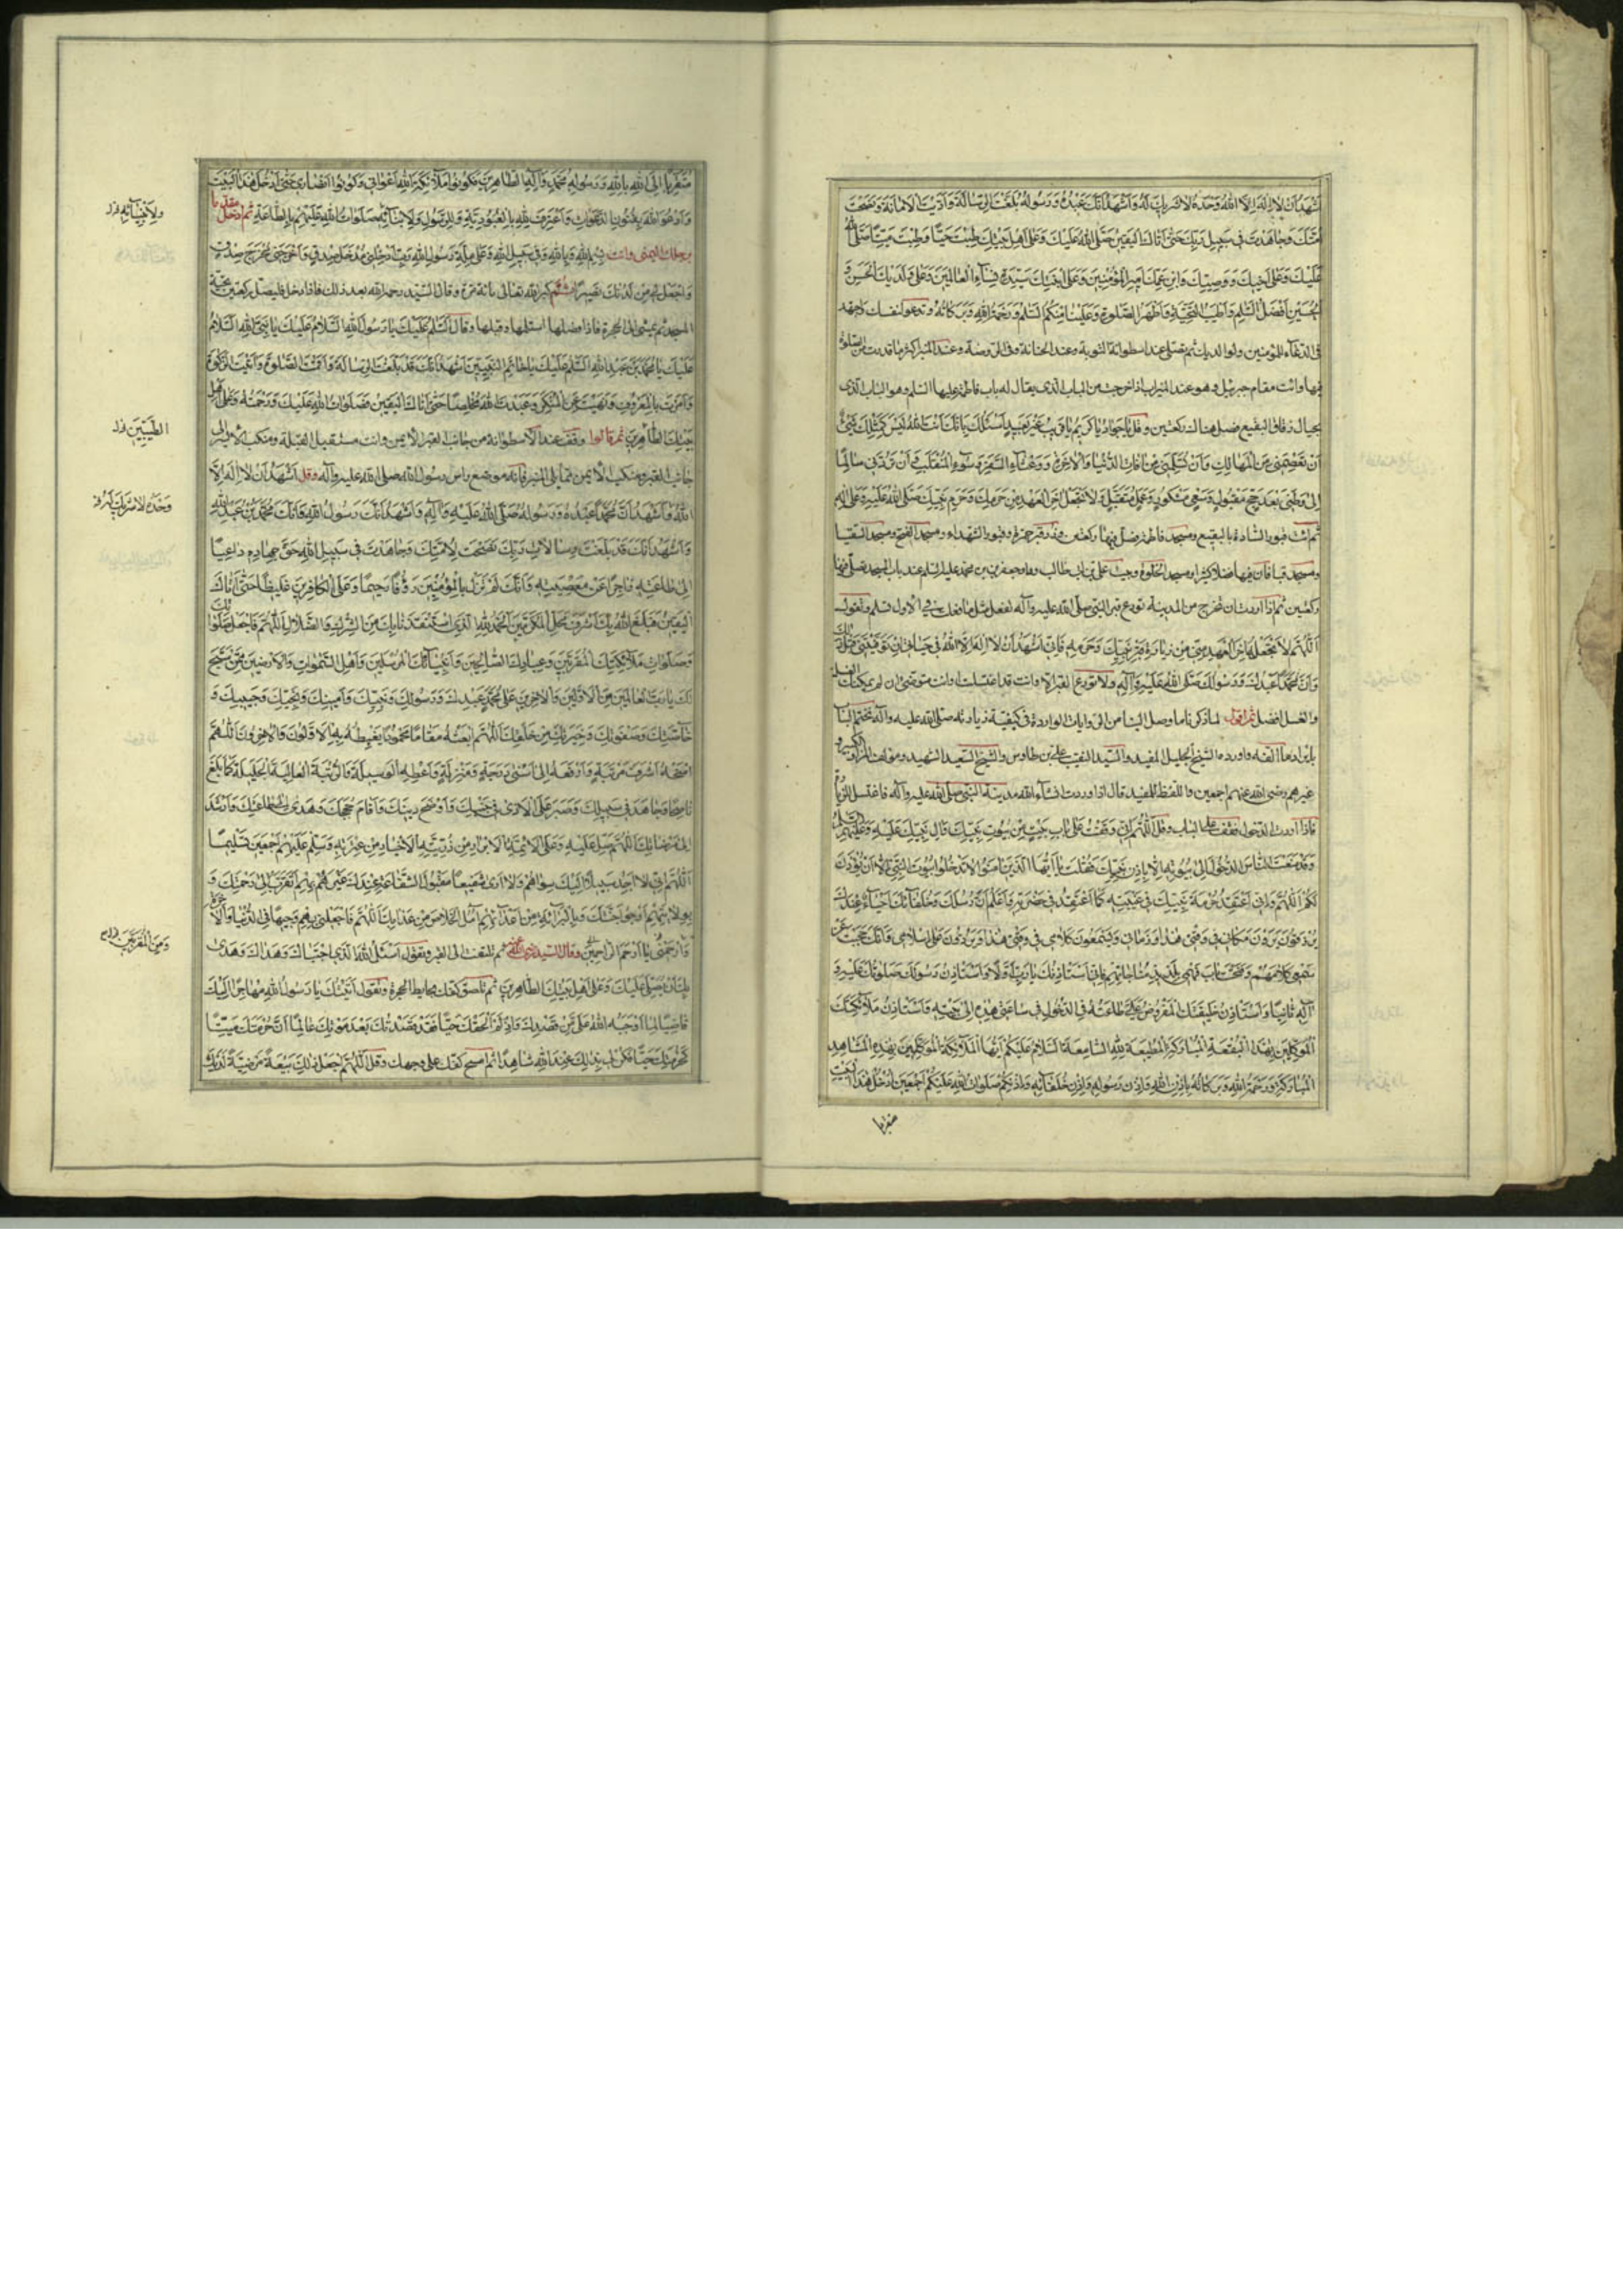 اَشْهَدُ اَنْ لا اِلهَ اِلاَّ اللهُ وَحْدَهُ لا شَريكَ لَهُ وَاَشْهَدُ اَنَّكَ عَبْدُهُ وَرَسُولُهُ بَلَّغْتَ الرِّسالَةَ وَاَدَّيْتَ الاَمانَةَ وَنَصَحْتَ
اُمَّتَكَ وَجاهَدْتَ في سَبيلِ رَبِّكَ حَتّى اَتاكَ الْيَقينُ صَلَّى اللهُ عَلَيْكَ وَعَلى اَهْلِ بَيْتِكَ طِبْتَ حَيّاً وَطِبْتَ مَيِّتاً صَلَّى اللهُ
عَلَيْكَ وَعَلى اَخيكَ وَوَصِيِّكَ وَابْنِ عَمِّكَ اَميرِ الْمُؤْمِنينَ وَعَلى ابْنَتِكَ سَيِّدَةِ نِساءِ الْعالَمينَ وَعَلى وَلَدَيْكَ الْحَسَنِ وَ
الْحُسَيْنِ اَفْضَلَ السَّلامِ وَاَطْيَبَ التَّحِيَّةِ وَاَطْهَرَ الصَّلوةِ وَعَلَيْنا مِنْكُمُ السَّلامُ وَرَحْمَةُ اللهِ وَبَرَكاتُهُ وتدعو لنفسك واجهد
في الدعاء للمؤمنين ولوالديك ثم تصلي عند اسطوانة التوبة وعند الحنانة وفي الروضة وعند المنبر اكثر ما قدرت من الصلوة
فيها وائت مقام جبرئيل وهو عند الميزاب اذا خرجت من الباب الذي يقال له باب فاطمة عليها السلم وهو الباب الذي
بحيال زقاق البقيع فصل هناك ركعتين وقل يا جَوادُ يا كَريمُ يا قَريبُ غَيْرَ بَعيدٍ اَسْئَلُكَ بِاَنَّكَ اَنْتَ اللهُ لَيْسَ كَمِثْلِكَ شَيْءٌ
اَنْ تَعْصِمَني مِنَ الْمَهالِكِ وَاَنْ تُسَلِّمَني مِنْ افاتِ الدُّنْيا وَالاخِرَةِ وَوَعْثاءِ السَّفَرِ وَسُوءِ الْمُنْقَلَبِ وَاَنْ تَرُدَّني سالِماً
اِلى وَطَني بَعْدَ حَجٍّ مَقْبُولٍ وَسَعْيٍ مَشْكُورٍ وَعَمَلٍ مُتَقَبَّلٍ وَلا تَجْعَلْهُ اخِرَ الْعَهْدِ مِنْ حَرَمِكَ وَحَرَمِ نَبِيِّكَ صَلَّى اللهُ عَلَيْهِ وَعَلى الِهِ
ثم ائت قبور السادة بالبقيع ومسجد فاطمة فصل فيها ركعتين وزر قبر حمزة وقبور الشهداء ومسجد الفتح ومسجد السقيا
ومسجد قبا فان فيها فضلا كثيرا ومسجد الخلوة وبيت علي بن ابي طالب ودار جعفر بن محمد عليهما السلم عند باب المسجد تصلي فيها
ركعتين ثم اذا اردت ان تخرج من المدينة تودع قبر النبي صلى الله عليه وآله تفعل مثل ما فعلت في الاول تسلم وتقول
اَللّهُمَّ لا تَجْعَلْهُ اخِرَ الْعَهْدِ مِنّي مِنْ زِيارَةِ قَبْرِ نَبِيِّكَ وَحَرَمِهِ فَاِنّي اَشْهَدُ اَنْ لا اِلهَ اِلاَّ اللهُ في حَياتي اِنْ تَوَفَّيْتَني قَبْلَ ذلِكَ
وَاَنَّ مُحَمَّداً عَبْدُكَ وَرَسُولُكَ صَلَّى اللهُ عَلَيْهِ وَآلِهِ ولا تودع القبر الا وانت قد اغتسلت او انت متوضئ ان لم يمكنك الغسل
والغسل افضل ثم اقول لما ذكرنا ما وصل الينا من الروايات الواردة في كيفية زيارته صلى الله عليه وآله نختم الباب
بايراد ما الفه واورده الشيخ الجليل المفيد والسيد النقيب علي بن طاوس والشيخ السعيد الشهيد ومؤلف المزار الكبير و
غيرهم رضي الله عنهم اجمعين واللفظ للمفيد قال اذا وردت انشاء الله مدينة النبي صلى الله عليه وآله فاغتسل للزيارة
فاذا اردت الدخول فقف على الباب وقل اَللّهُمَّ اِنّي وَقَفْتُ عَلى بابِ بَيْتٍ مِنْ بُيُوتِ نَبِيِّكَ وَآلِ نَبِيِّكَ عَلَيْهِ وَعَلَيْهِمُ السَّلامُ
وَقَدْ مَنَعْتَ النّاسَ الدُّخُولَ اِلى بُيُوتِهِ اِلاّ بِاِذْنِ نَبِيِّكَ فَقُلْتَ يا اَيُّهَا الَّذينَ امَنُوا لا تَدْخُلُوا بُيُوتَ النَّبِيِّ اِلاّ اَنْ يُؤْذَنَ
لَكُمْ اَللّهُمَّ وَاِنّي اَعْتَقِدُ حُرْمَةَ نَبِيِّكَ في غَيْبَتِهِ كَما اَعْتَقِدُ في حَضْرَتِهِ وَاَعْلَمُ اَنَّ رُسُلَكَ وَخُلَفائَكَ اَحْياءٌ عِنْدَكَ
يُرْزَقُونَ يَرَوْنَ مَكاني في وَقْتي هذا وَزَماني وَيَسْمَعُونَ كَلامي في وَقْتي هذا وَيَرُدُّونَ عَلَيَّ سَلامي وَاَنَّكَ حَجَبْتَ عَنْ
سَمْعي كَلامَهُمْ وَفَتَحْتَ بابَ فَهْمي بِلَذيذِ مُناجاتِهِمْ فَاِنّي اَسْتَاْذِنُكَ يا رَبِّ اَوَّلاً وَاَسْتَاْذِنُ رَسُولَكَ صَلَواتُكَ عَلَيْهِ وَ
آلِهِ ثانِياً وَاَسْتَاْذِنُ خَليفَتَكَ الْمَفْرُوضَ عَلَيَّ طاعَتُهُ فِي الدُّخُولِ في ساعَتي هذِهِ اِلى بَيْتِهِ وَاَسْتَاْذِنُ مَلائِكَتَكَ
الْمُوَكَّلينَ بِهذِهِ الْبُقْعَةِ الْمُبارَكَةِ الْمُطيعَةِ للهِ السّامِعَةِ اَلسَّلامُ عَلَيْكُمْ اَيُّهَا الْمَلائِكَةُ الْمُوَكَّلُونَ بِهذِهِ الْمَشاهِدِ
الْمُبارَكَةِ وَرَحْمَةُ اللهِ وَبَرَكاتُهُ بِاِذْنِ اللهِ وَاِذْنِ رَسُولِهِ وَاِذْنِ خُلَفائِهِ وَاِذْنِكُمْ صَلَواتُ اللهِ عَلَيْكُمْ اَجْمَعينَ اَدْخُلُ هذَا الْبَيْتَ
متقربا
مُتَقَرِّباً اِلَى اللهِ بِاللهِ وَرَسُولِهِ مُحَمَّدٍ وَآلِهِ الطّاهِرينَ فَكُونُوا مَلائِكَةَ اللهِ اَعْواني وَكُونُوا اَنْصاري حَتّى اَدْخُلَ هذَا الْبَيْتَ
وَاَدْعُوَ اللهَ بِفُنُونِ الدَّعَواتِ وَاَعْتَرِفَ للهِ بِالْعُبُودِيَّةِ وَلِلرَّسُولِ وَلاَبْنائِهِ صَلَواتُ اللهِ عَلَيْهِمْ بِالطّاعَةِ ثم ادخل مقدما
برجلك اليمنى وانت بِسْمِ اللهِ وَبِاللهِ وَفي سَبيلِ اللهِ وَعَلى مِلَّةِ رَسُولِ اللهِ رَبِّ اَدْخِلْني مُدْخَلَ صِدْقٍ وَاَخْرِجْني مُخْرَجَ صِدْقٍ
وَاجْعَلْ لي مِنْ لَدُنْكَ نَصيراً ثم كبر الله تعالى مائة مرة وقال السيد رحمه الله بعد ذلك فاذا دخل فليصل ركعتين تحية
المسجد ثم يمشي الى الحجرة فاذا وصلها استلمها وقبلها وقال اَلسَّلامُ عَلَيْكَ يا رَسُولَ اللهِ اَلسَّلامُ عَلَيْكَ يا نَبِيَّ اللهِ اَلسَّلامُ
عَلَيْكَ يا مُحَمَّدَ بْنَ عَبْدِ اللهِ اَلسَّلامُ عَلَيْكَ يا خاتَمَ النَّبِيّينَ اَشْهَدُ اَنَّكَ قَدْ بَلَّغْتَ الرِّسالَةَ وَاَقَمْتَ الصَّلوةَ وَاتَيْتَ الزَّكوةَ
وَاَمَرْتَ بِالْمَعْرُوفِ وَنَهَيْتَ عَنِ الْمُنْكَرِ وَعَبَدْتَ اللهَ مُخْلِصاً حَتّى اَتاكَ الْيَقينُ فَصَلَواتُ اللهِ عَلَيْكَ وَرَحْمَتُهُ وَعَلى اَهْلِ
بَيْتِكَ الطّاهِرينَ ثم قالوا وقف عند الاسطوانة من جانب القبر الأيمن وانت مستقبل القبلة ومنكبك الأيسر الى
جانب القبر ومنكبك الأيمن مما يلي المنبر فانه موضع راس رسول الله صلى الله عليه وآله وقل اَشْهَدُ اَنْ لا اِلهَ اِلاَّ
اللهُ وَاَشْهَدُ اَنَّ مُحَمَّداً عَبْدُهُ وَرَسُولُهُ صَلَّى اللهُ عَلَيْهِ وَآلِهِ وَاَشْهَدُ اَنَّكَ رَسُولُ اللهِ وَاَنَّكَ مُحَمَّدُ بْنُ عَبْدِ اللهِ
وَاَشْهَدُ اَنَّكَ قَدْ بَلَّغْتَ رِسالاتِ رَبِّكَ وَنَصَحْتَ لاُمَّتِكَ وَجاهَدْتَ في سَبيلِ اللهِ حَقَّ جِهادِهِ داعِياً
اِلى طاعَتِهِ زاجِراً عَنْ مَعْصِيَتِهِ وَاَنَّكَ لَمْ تَزَلْ بِالْمُؤْمِنينَ رَؤُفاً رَحيماً وَعَلَى الْكافِرينَ غَليظاً حَتّى اَتاكَ
الْيَقينُ فَبَلَغَ اللهُ بِكَ اَشْرَفَ مَحَلِّ الْمُكَرَّمينَ اَلْحَمْدُ للهِ الَّذي اسْتَنْقَذَنا بِكَ مِنَ الشِّرْكِ وَالضَّلالِ اَللّهُمَّ فَاجْعَلْ صَلَواتِكَ
وَصَلَواتِ مَلائِكَتِكَ الْمُقَرَّبينَ وَعِبادِكَ الصّالِحينَ وَاَنْبِيائِكَ الْمُرْسَلينَ وَاَهْلِ السَّمواتِ وَالاَرَضينَ وَمَنْ سَبَّحَ
لَكَ يا رَبَّ الْعالَمينَ مِنَ الاَوَّلينَ وَالاخِرينَ عَلى مُحَمَّدٍ عَبْدِكَ وَرَسُولِكَ وَنَبِيِّكَ وَاَمينِكَ وَنَجِيِّكَ وَحَبيبِكَ وَ
خاصَّتِكَ وَصَفْوَتِكَ وَخِيَرَتِكَ مِنْ خَلْقِكَ اَللّهُمَّ ابْعَثْهُ مَقاماً مَحْمُوداً يَغْبِطُهُ بِهِ الاَوَّلُونَ وَالاخِرُونَ اَللّهُمَّ
امْنَحْهُ اَشْرَفَ مَرْتَبَةٍ وَارْفَعْهُ اِلى اَسْنى دَرَجَةٍ وَمَنْزِلَةٍ وَاَعْطِهِ الْوَسيلَةَ وَالرُّتْبَةَ الْعالِيَةَ الْجَليلَةَ كَما بَلَّغَ
ناصِحاً وَجاهَدَ في سَبيلِكَ وَصَبَرَ عَلَى الاَذى في جَنْبِكَ وَاَوْضَحَ دينَكَ وَاَقامَ حُجَجَكَ وَهَدى اِلى طاعَتِكَ وَاَرْشَدَ
اِلى مَرْضاتِكَ اَللّهُمَّ صَلِّ عَلَيْهِ وَعَلَى الاَئِمَّةِ الاَبْرارِ مِنْ ذُرِّيَّتِهِ الاَخْيارِ مِنْ عِتْرَتِهِ وَسَلِّمْ عَلَيْهِمْ اَجْمَعينَ تَسْليماً
اَللّهُمَّ اِنّي لا اَجِدُ سَبيلاً اِلَيْكَ سِواهُمْ وَلا اَرى شَفيعاً مَقْبُولَ الشَّفاعَةِ عِنْدَكَ غَيْرَهُمْ بِهِمْ اَتَقَرَّبُ اِلى رَحْمَتِكَ وَ
بِوِلايَتِهِمْ اَرْجُو جَنَّتَكَ وَبِالْبَراءَةِ مِنْ اَعْدائِهِمْ آمُلُ الْخَلاصَ مِنْ عَذابِكَ اَللّهُمَّ فَاجْعَلْني بِهِمْ وَجيهاً فِي الدُّنْيا وَالاخِرَةِ
وَارْحَمْني يا اَرْحَمَ الرّاحِمينَ وقال السيد رضي الله عنه ثم تلتفت الى القبر وتقول اَسْئَلُ اللهَ الَّذي اجْتَباكَ وَهَداكَ وَهَدى
بِكَ اَنْ يُصَلِّيَ عَلَيْكَ وَعَلى اَهْلِ بَيْتِكَ الطّاهِرينَ ثم تلصق كفك بحايط الحجرة وتقول اَتَيْتُكَ يا رَسُولَ اللهِ مُهاجِراً اِلَيْكَ
قاضِياً لِما اَوْجَبَهُ اللهُ عَلَيَّ مِنْ قَصْدِكَ وَاِذْ لَمْ اَلْحَقْكَ حَيّاً فَقَدْ قَصَدْتُكَ بَعْدَ مَوْتِكَ عالِماً اَنَّ حُرْمَتَكَ مَيِّتاً
كَحُرْمَتِكَ حَيّاً فَكُنْ لي بِذلِكَ عِنْدَ اللهِ شاهِداً ثم امسح كفك على وجهك وقل اَللّهُمَّ اجْعَلْ ذلِكَ بَيْعَةً مَرْضِيَّةً لَدَيْكَ
وَلاَنْبِيائِهِ
الطَّيِّبينَ
وَحْدَهُ لا شَريكَ لَهُ
وَمِنَ الْمُقَرَّبينَ